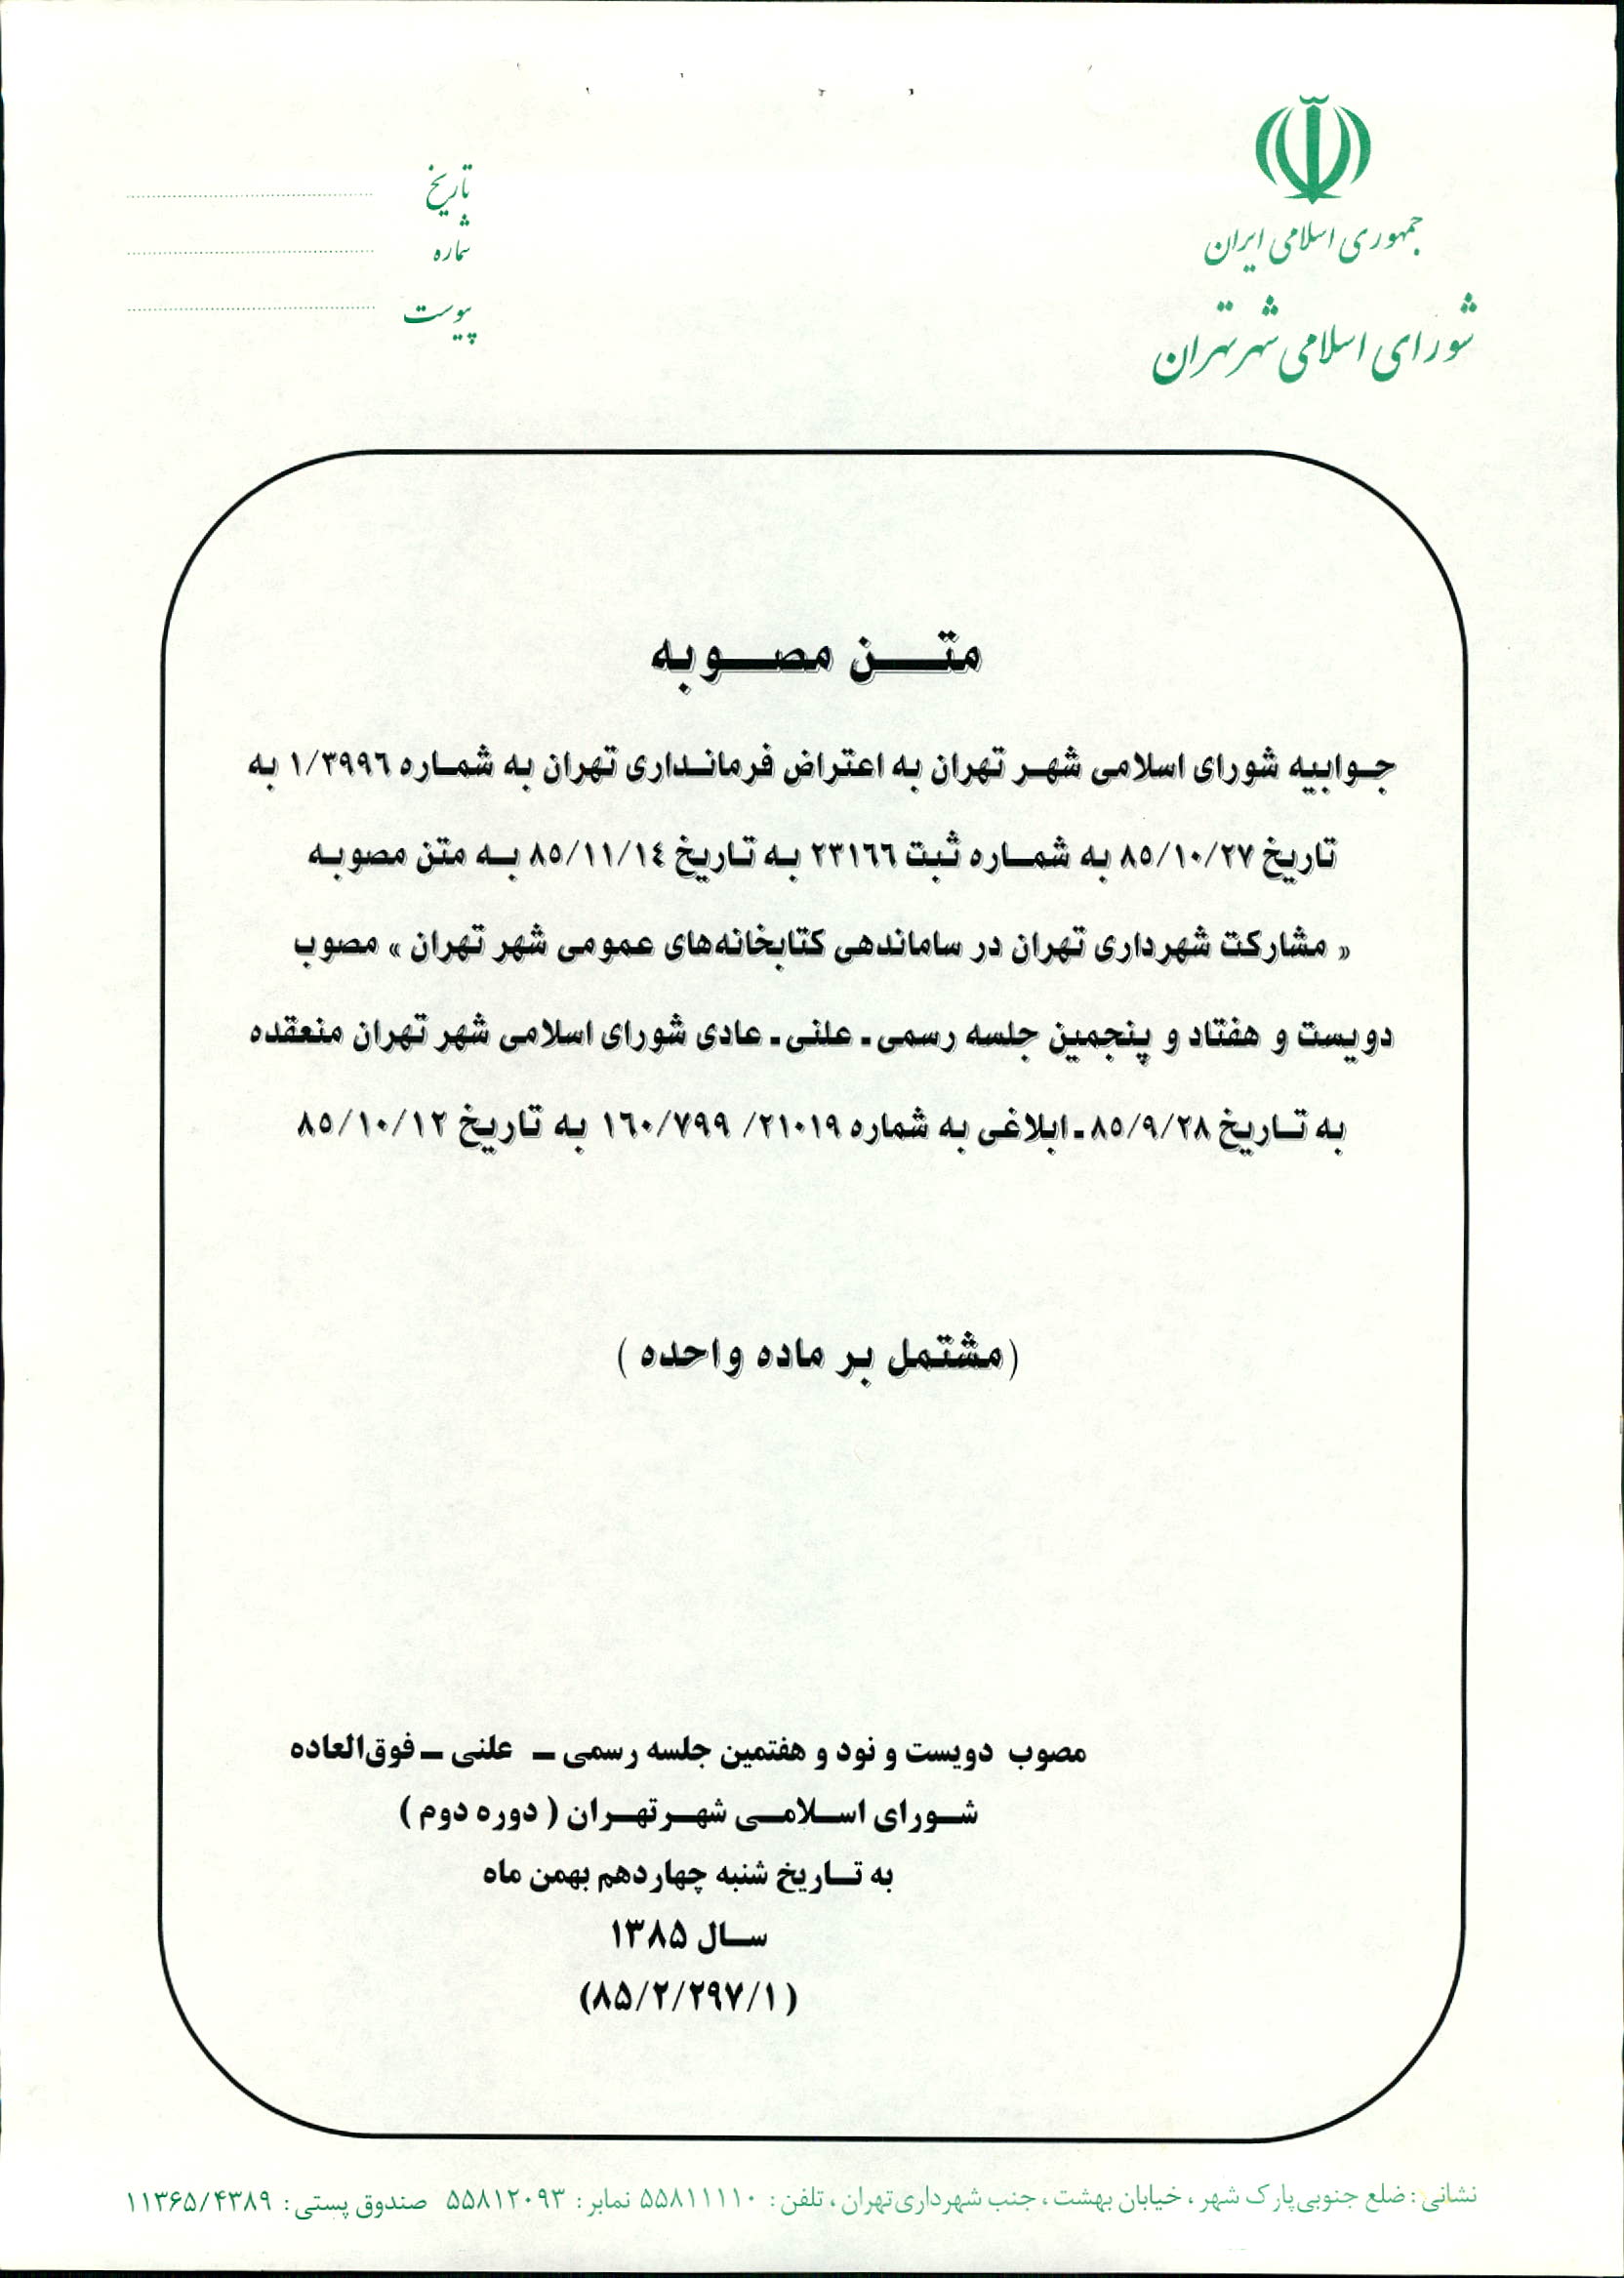 جمهوری اسلامی ایران
شورای اسلامی شهر تهران
تاریخ
شماره
پیوست
متن مصوبه
جوابیه شورای اسلامی شهر تهران به اعتراض فرمانداری تهران به شماره ۱/۳۹۹۶ به
تاریخ ۸۵/۱۰/۲۷ به شماره ثبت ۲۳۱۶۶ به تاریخ ۸۵/۱۱/۱۴ به متن مصوبه
« مشارکت شهرداری تهران در ساماندهی کتابخانه‌های عمومی شهر تهران » مصوب
دویست و هفتاد و پنجمین جلسه رسمی ـ علنی ـ عادی شورای اسلامی شهر تهران منعقده
به تاریخ ۸۵/۹/۲۸ ـ ابلاغی به شماره ۱۶۰/۷۹۹ /۲۱۰۱۹ به تاریخ ۸۵/۱۰/۱۲
(مشتمل بر ماده واحده )
مصوب دویست و نود و هفتمین جلسه رسمی ـ علنی ـ فوق‌العاده
شورای اسلامی شهر تهران ( دوره دوم )
به تاریخ شنبه چهاردهم بهمن ماه
سال ۱۳۸۵
(۸۵/۲/۲۹۷/۱)
نشانی : ضلع جنوبی پارک شهر ، خیابان بهشت ، جنب شهرداری تهران ، تلفن : ۵۵۸۱۱۱۱۰ نمابر : ۵۵۸۱۲۰۹۳ صندوق پستی : ۱۱۳۶۵/۴۳۸۹